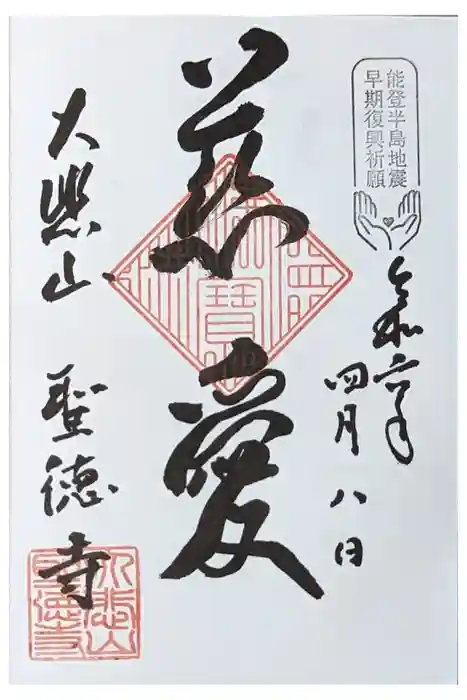 能登半島地震
早期復興祈願
令和六年
四月八日
慈愛
大悲山 聖徳寺
大悲山
聖徳寺